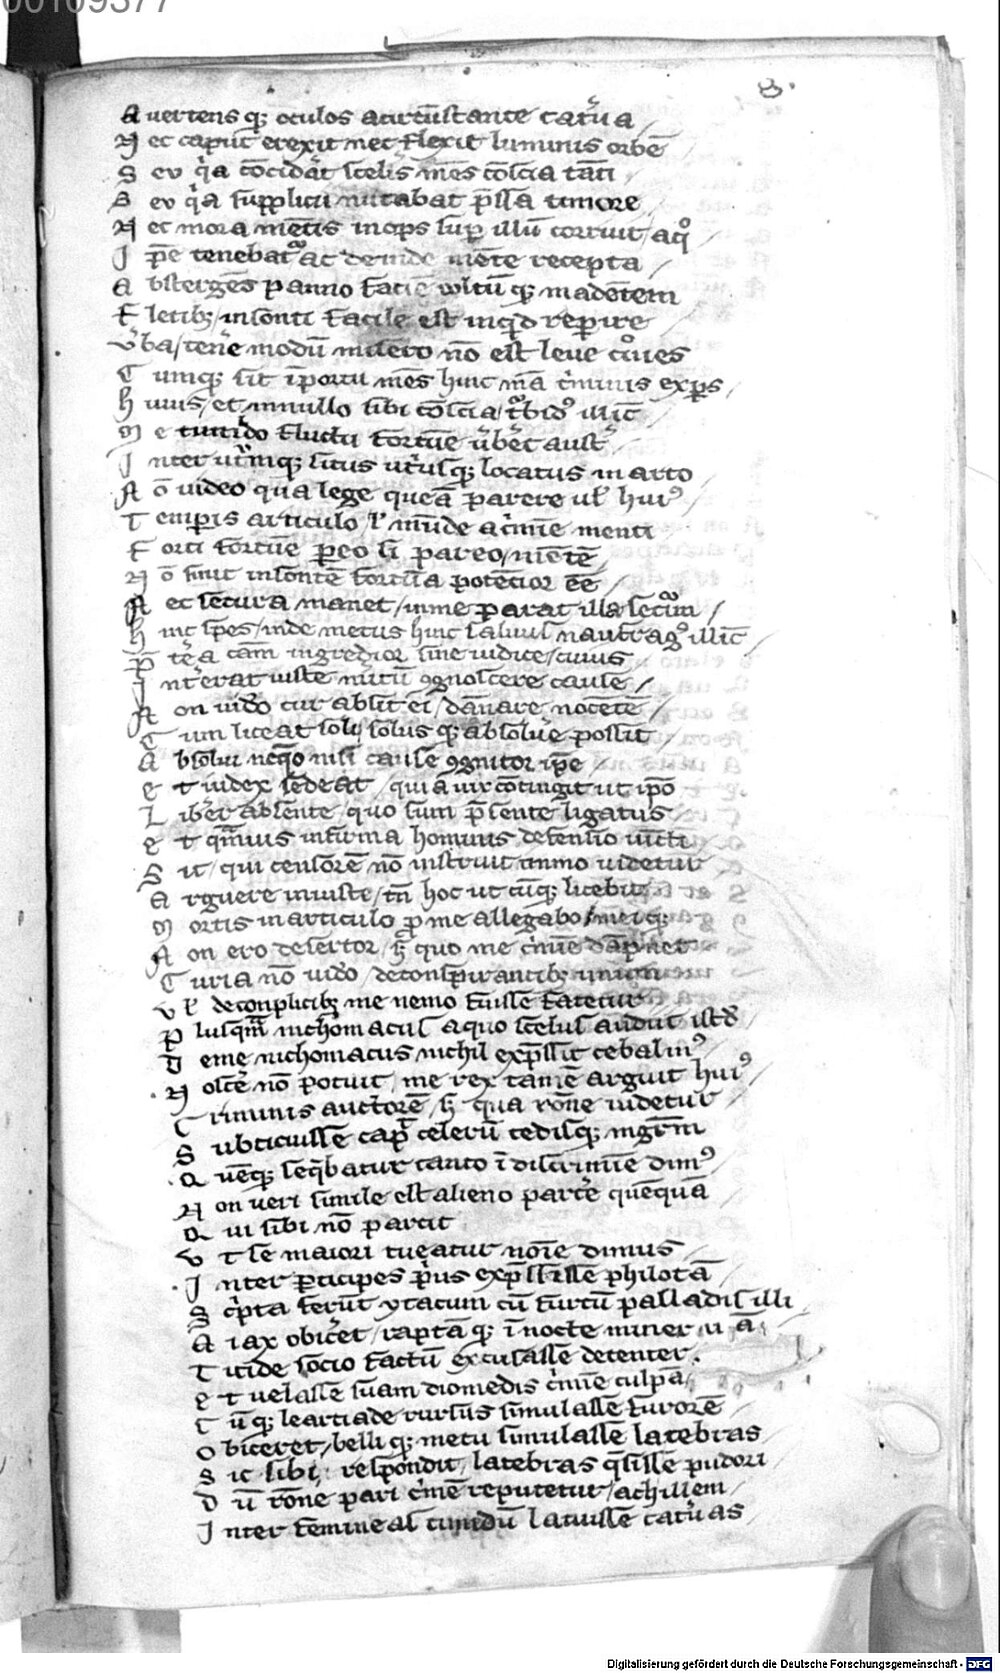 00109377
8.
A vertens q; oculos a circu̅stante cat̓ua
N ec caput erexit nec flexit luminis orbe̅
S eu q̓a co̅cidat sceleris me̅s co̅scia ta̅ti
S eu q̓a supplicii nutabat p̅ssa timore
N ec mora me̅tis inops sup illu̅ corruit / a quo
I p̅e tenebat̓ ac deinde me̅te recepta
A bsterge̅s panno facie̅ voltu̅ q; made̅tem
F letib; / insonti facile est inq̓d reperire
V̓ba / tene̓ modu̅ misero no̅ est leve ciues
C umq; sit i̅ portu me̅s hinc m̅a c̓minis expers
H uius / et in nullo sibi co̅scia / t̓bid̓ illic
M e timido fluctu fortune u̓beret aust̓
I nter ut̓mq; situs ut̓usq; locatus in arto
N o̅ video qua lege quea̅ parere ul̓ hui̓
T emp̅is articulo l̓ mu̅de a c̓mi̅e menti
F orti fortu̅e p̅eo si pareo / me̅te̅
N o̅ sinit insonte̅ fortu̅a potencior e̅e̅
N ec secura manet / in me parat illa secu̓im
H inc spes / inde metus hinc salu̓ naufrag̓ illic
P̅ te̓a ca̅m ingredior sine iudice / cuius
I nt̓erat iuste meritu̅ ꝯgnoscere cause
N on uid̓o cur absit ei̅ / da̅nare noce̅te̅
C um liceat soli / solus q; absolue̓ possit
A bsolui neq̓o nisi cause ꝯgnitor ip̅e
E t iudex sedeat / quia̅ uix co̅tingit ut ip̅o
L iber absente / quo sum p̅sente ligatus
E t qm̅uis infirma hominis defensio uincti
S it / qui censore̅ no̅ instruit immo uidetur
A rguere iniuste / tn̅ hoc ut cu̅q; licebit
M ortis in articulo p̅ me allegabo / mei q;
N on ero desertor / s̅ quo me c̓mi̅e da̅pnet
C uria no̅ uid̓o / de conspirantib; unum
V l̓ de conplicib; me nemo fuisse fatetur
P lusq̅m nichomacus a quo scelus audiit isto̓
D e me nichomacus nichil exp̅ssit cebalin̓
N osce̅ no̅ potuit / me rex tame̅ arguit hui̓
C riminis auctore̅ / s̅ qua ro̅ne uidetur
S ubticuisse cap̓ sceleru̅ cedisq; mgr̅m
Q ue̅q; seq̓batur tanto i̅ discrimi̅e dim̓
N on ueri simile est alieno parce̓ que̅qua̅
Q ui sibi no̅ parcit
V t se maiori tueatur noi̅e dimus
I nter p̅ticipes p̓us exp̅ssisse philota̅
S c̓pta feru̅t ytacum cu̅ furtu̅ palladis illi
A iax obic̓et / rapta̅ q; i̅ nocte minerua̅
T itide socio factu̅ excusasse decenter.
E t uelasse suam diomedis c̓mi̅e culpa̅
C u̅q; leartiade rursu̅s simulasse furore̅
O biceret / belli q; metu simulasse latebras
S ic sibi respondit / latebras q̓sisse pudori
D u̅ ro̅ne pari c̓me̅ reputetur / achillem
I nter femineas timidu̅ latuisse cat̓uas
Digitalisierung gefördert durch die Deutsche Forschungsgemeinschaft - DFG